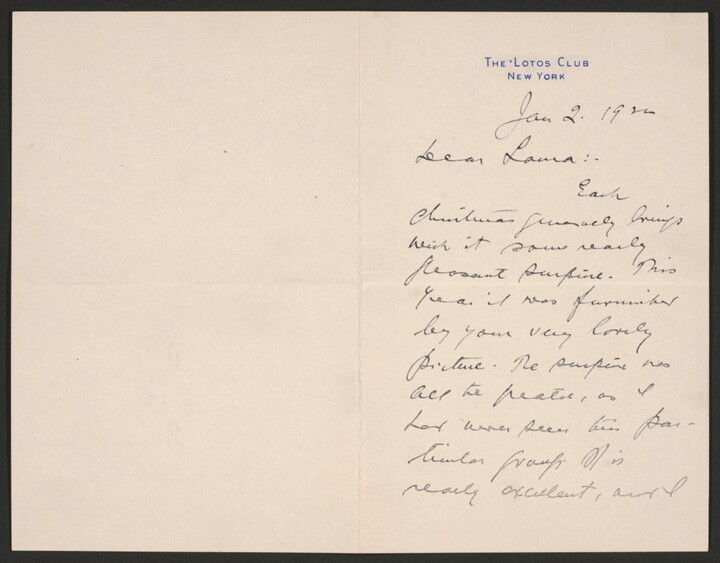 THE LOTOS CLUB
NEW YORK
Jan 2. 1922
Dear Laura:-
Each
Christmas generally brings
with it some really
pleasant surprise. This
Year it was furnished
by your very lovely
picture. The surprise was
all the greater, as I
had never seen this par-
ticular group. It is
really excellent, and I